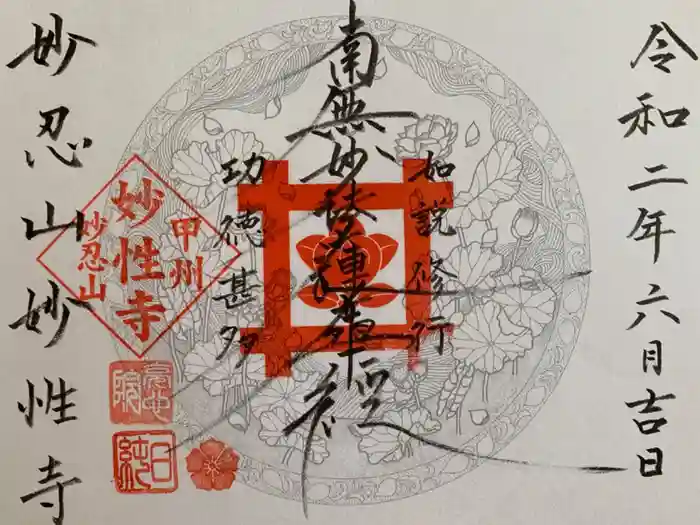 令和二年六月吉日
如説修行
南無妙法蓮華経
功徳甚多
甲州
妙性寺
妙忍山
妙忍山妙性寺
日純